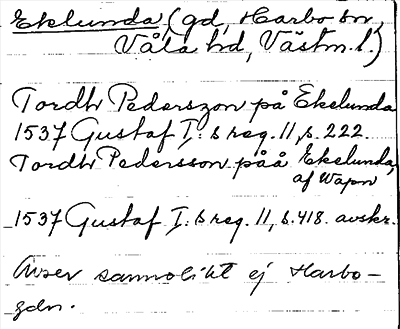 Ekelunda, (gd, Harbo sn,
Våla hd, Västm. l.)
Tordh Pederszon på Ekelunda
1537 Gustaf I:s reg. 11, s. 222.
Tordh Pedersson påå Ekelunda,
af Wapn
1537 Gustaf I:s reg. 11, s. 418. avskr.
Avser sannolikt ej Harbo-
gdn.